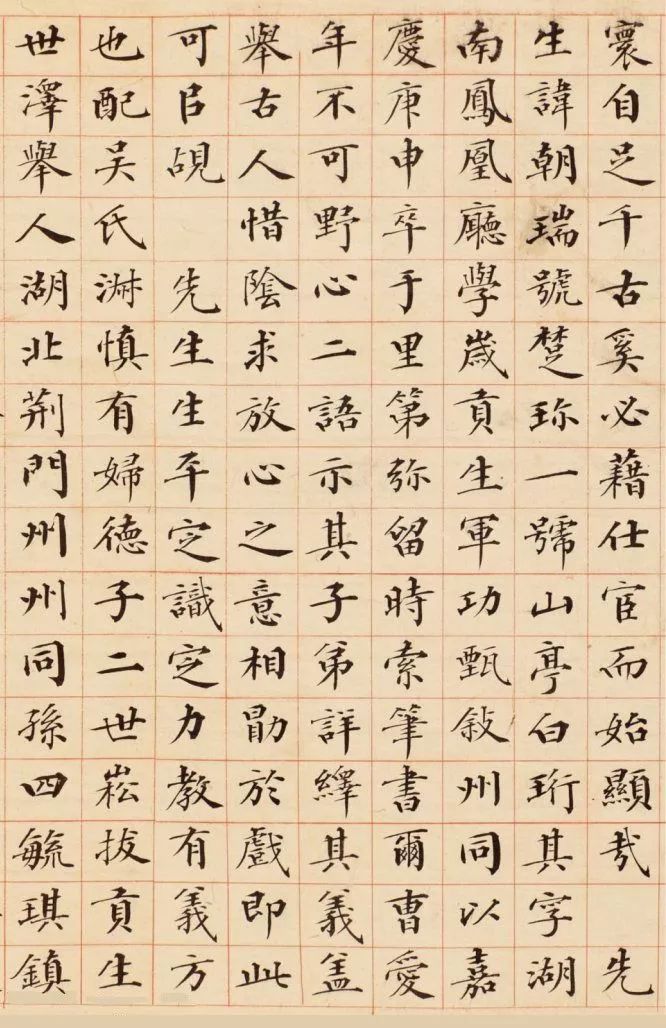 寰自足千古奚必藉仕宦而始顯哉 先
生諱朝瑞號楚珎一號山亭白珩其字湖
南鳳凰廳學歲貢生軍功甄敘州同以嘉
慶庚申卒于里第弥留時索筆書爾曹愛
年不可野心二語示其子弟詳繹其義盖
舉古人惜陰求放心之意相勖於戲即此
可㠯覘 先生生平定識定力教有義方
也配吴氏淑慎有婦德子二世崧拔貢生
世澤舉人湖北荊門州州同孫四毓琪鎮